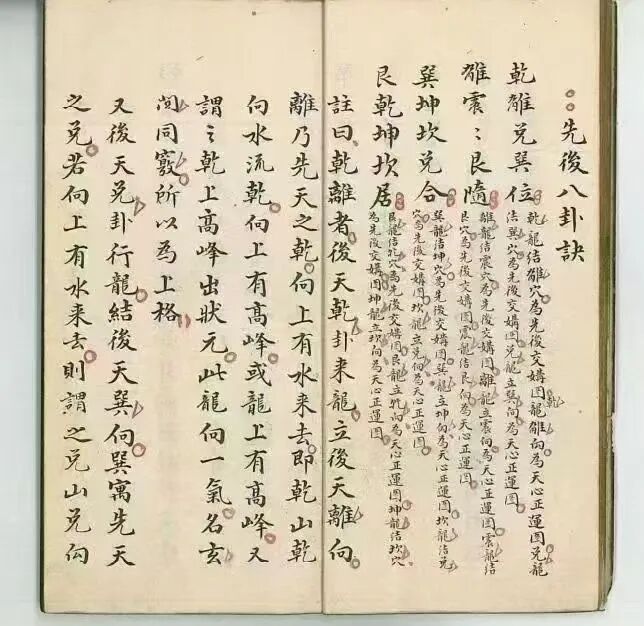 先後八卦訣
乾離兌巽位
乾龍結離穴為先後交媾图龍離向為天心正運图兌龍
乾
结巽穴為先後交媾图兌龍立巽向為天心正運图
離震〻艮隨
離龍结震穴為先後交媾图離龍立震向為天心正運图震龍结
艮穴為先後交媾图震龍结艮向為天心正運图
巽坤坎兌合
巽龍结坤穴為先後交媾图巽龍立坤向為天心正運图坎龍结兌
穴為先後交媾图坎龍立兌向為天心正運图
艮乾坤坎居
艮龍结乾穴為先後交媾图艮龍立乾向為天心正運图坤龍结坎穴
為先後交媾图坤龍立坎向為天心正運图
註曰乾離者後天乾卦来龍立後天離向
離乃先天之乾向上有水来去即乾山乾
向水流乾向上有髙峰或龍上有髙峰又
謂之乾上髙峰出狀元此龍向一氣名玄
間同竅所以為上格
又後天兌卦行龍結後天巽向巽寓先天
之兌若向上有水来去則謂之兌山兌向